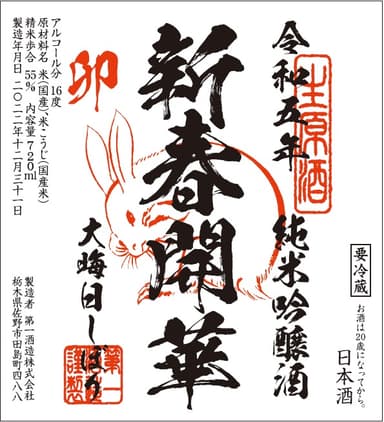 令和五年
生原酒
純米吟醸酒
要冷蔵
お酒は20歳になってから。
日本酒
新春開華
卯
大晦日しぼり
第一酒造謹製
アルコール分 16度
原材料名 米(国産)、米こうじ(国産米)
精米歩合 55% 内容量 720ml
製造年月日 二〇二二年十二月三十一日
製造者 第一酒造株式会社
栃木県佐野市田島町四八八